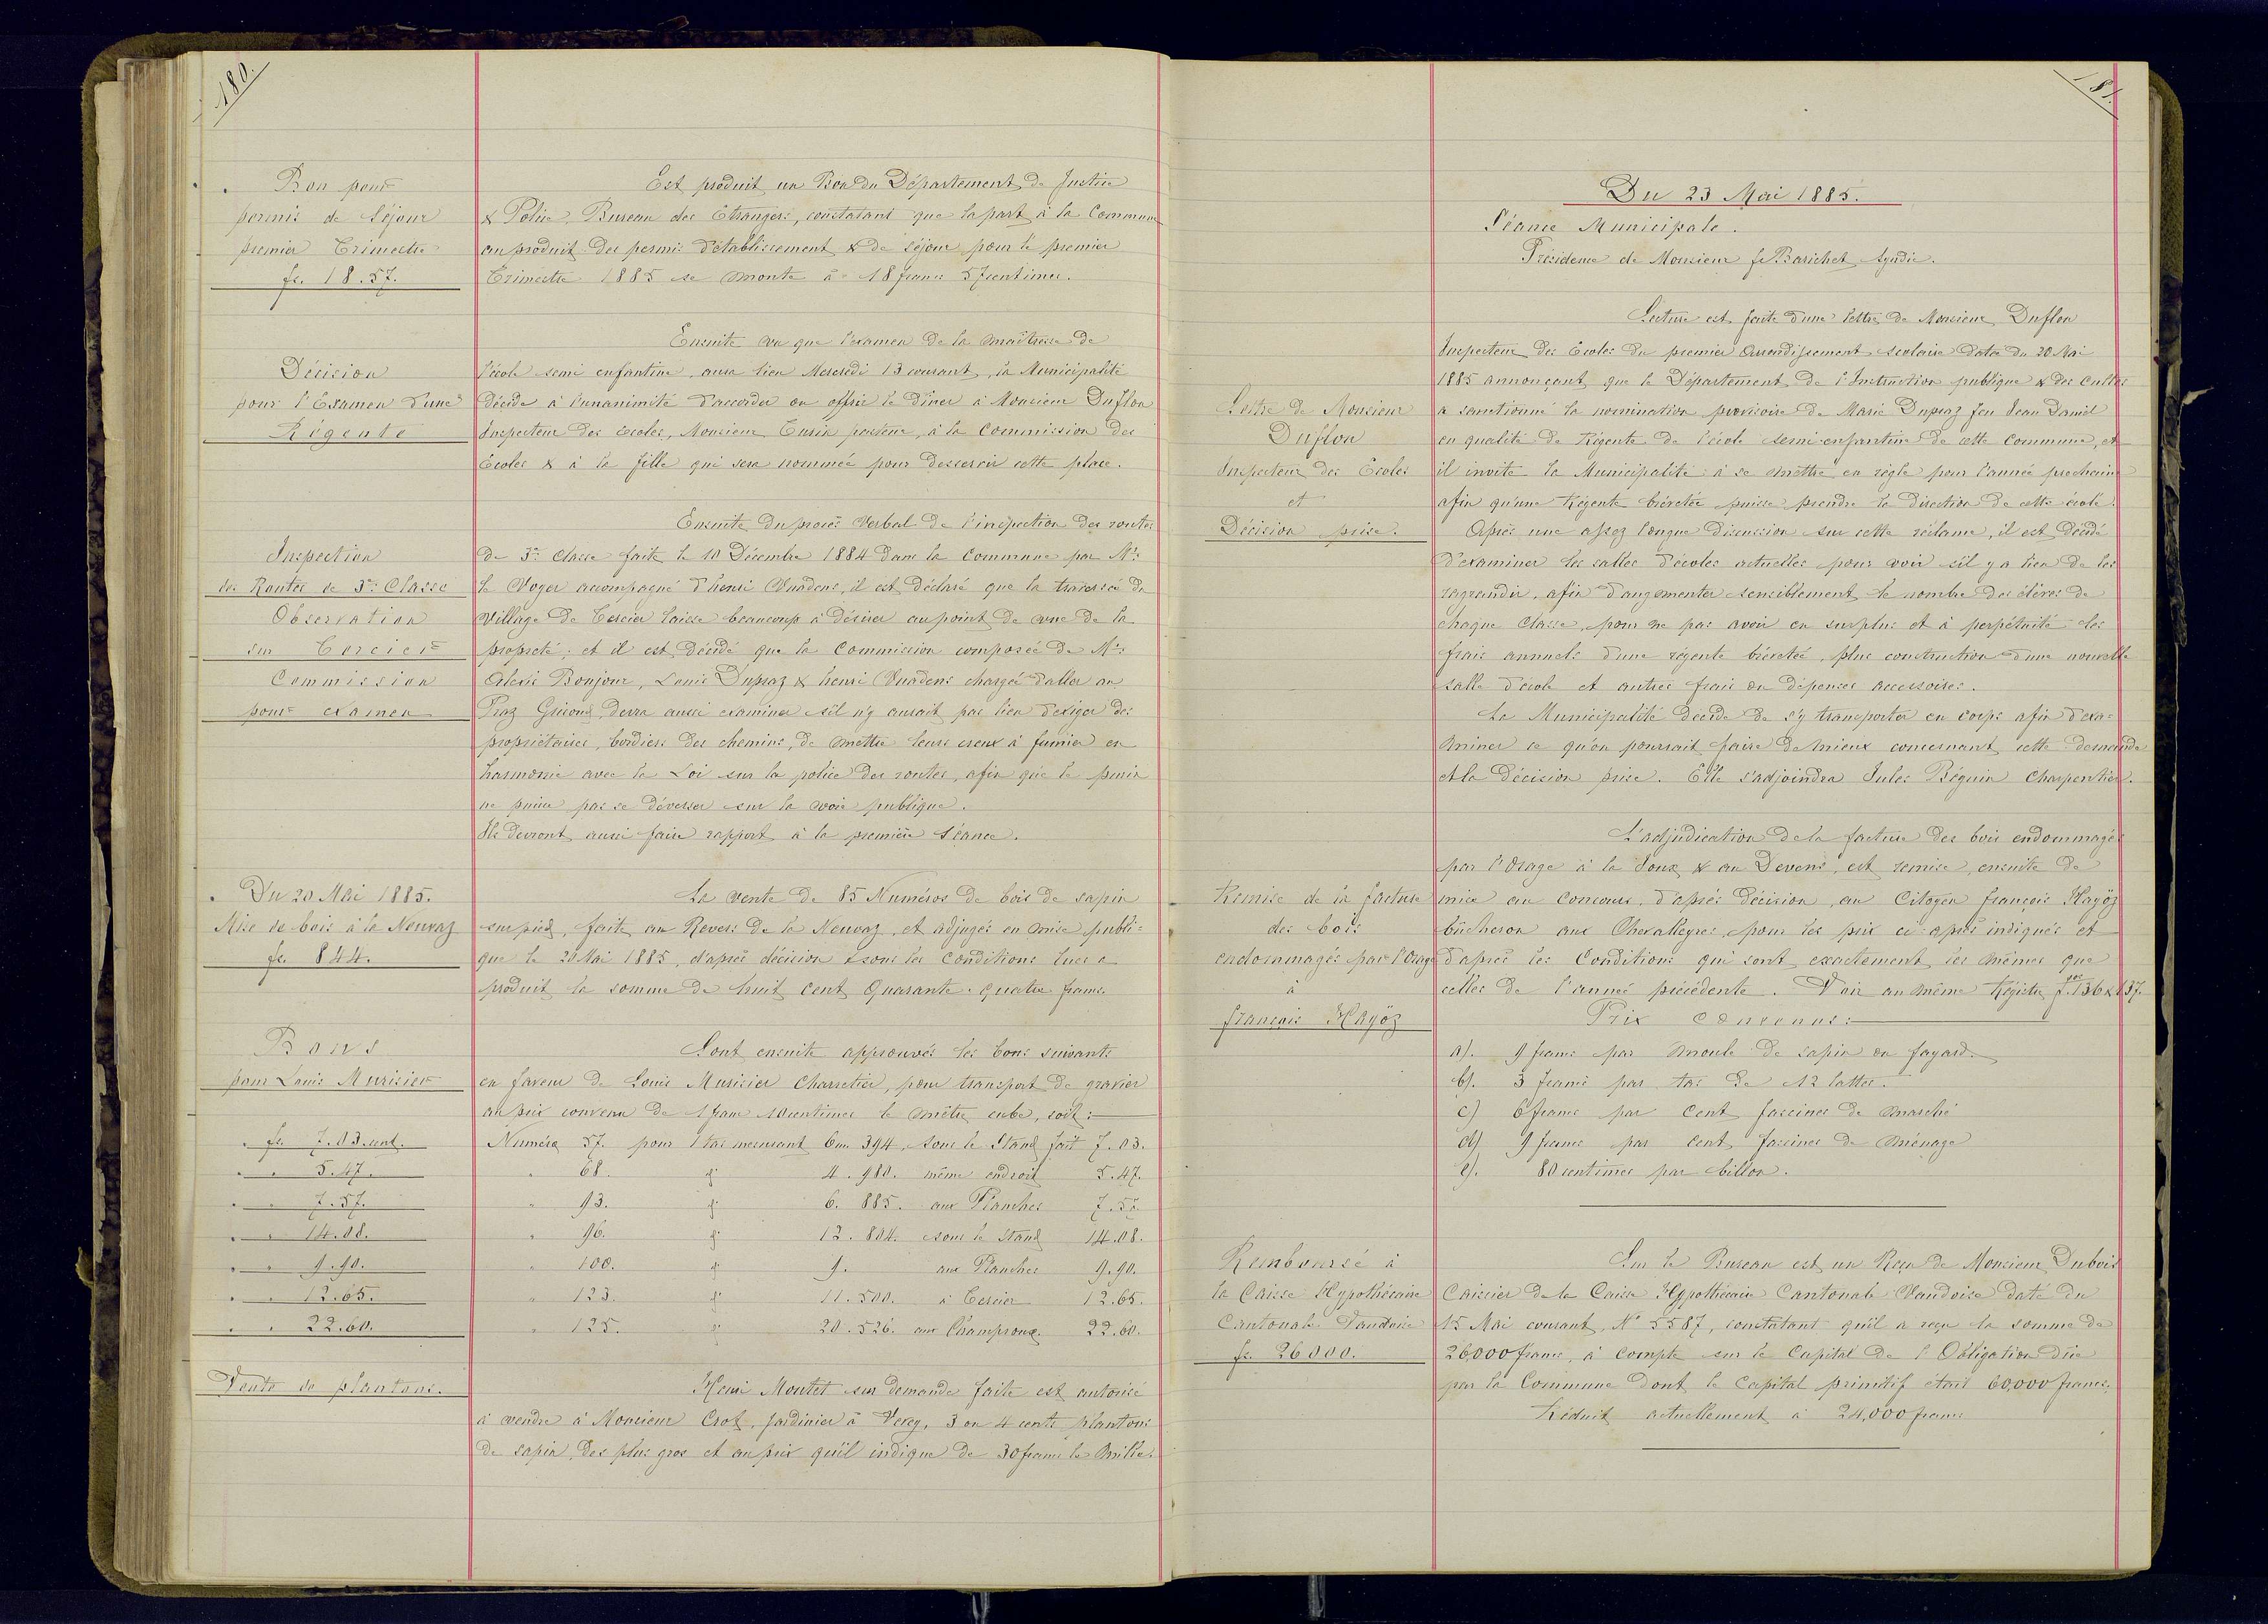 180.
Bon pour
permis de Séjour
premier Trimestre
fr. 18.57.
Est produit un Bon du Département de Justice
& Police, Bureau des Etrangers, constatant que la part à la Commune
au produit des permis d'établissement & de séjour pour le premier
Trimestre 1885 se monte à 18 francs 57 centimes.
Décision
pour l'Examen d'une
Régente
Ensuite vu que l'examen de la maîtresse de
l'école semi enfantine, aura lieu Mercredi 13 courant, la Municipalité
décide à l'unanimité d'accorder ou offrir le dîner à Monsieur Duflon
Inspecteur des écoles, Monsieur pasteur, à la Commission des
Ecoles & à la fille qui sera nommée pour desservir cette place.
Inspection
des Routes de 3me Classe
Observation
sur Tercier
Commission
pour examen
Ensuite du procès verbal de l'inspection des routes
de 3me Classe faite le 10 Décembre 1884 dans la Commune par Mr.
le Voyer accompagné d'henri Vuadens, il est déclaré que la traversée du
Village de Tercier laisse beaucoup à désirer au point de vue de la
propreté; et il est décidé que la Commission composée de Mrs.
Alexis Bonjour, Louis Dupraz & henri Vuadens chargée d'aller au
Praz Grisoud, devra aussi examiner s'il n'y aurait pas lieu d'exiger des
propriétaires, bordiers des chemins, de mettre leurs creux à fumier en
harmonie avec la Loi sur la police des routes, afin que le purin
ne puisse pas se déverser sur la voie publique.
Ils devront aussi faire rapport à la première séance.
Du 20 Mai 1885.
Mise de bois à la Neuvaz
fr. 844.
La vente de 85 Numéros de bois de sapin
sur pied, faite au Revers de la Neuvaz, et adjugés en mise publi=
que le 20 Mai 1885, d'après décision & sous les conditions lues a
produit la somme de huit cent quarante-quatre francs.
Bons
pour Louis Murisier
Sont ensuite approuvés les bons suivants
en faveur de Louis Murisier Charretier, pour transport de gravier
au prix convenu de 1 franc 10 centimes le mètre cube, soit:
fr. 7.03 cent. Numéro 57. pour 1 tas mesurant 6m. 394. sous le Stand fait 7.03.
" " 5.47. " 68. do 4.980. même endroit 5.47.
" " 7.57. " 93. do 6.885. aux Planches 7.57
" " 14.08. " 96. do 12.804. sous le Stand 14.08.
" " 9.90. " 100. do 9. aux Planches 9.90.
" " 12.65. " 123. do 11.500. à Tercier 12.65.
" " 22.60. " 125. do 20.526. aux Champsroux. 22.60.
Vente de plantons.
Henri Montet sur demande faite est autorisé
à vendre à Monsieur Crot, jardinier à Vevey, 3 ou 4 cents plantons
de sapin, des plus gros et au prix qu'il indique de 30 francs le mille.
181.
Du 23 Mai 1885.
Séance Municipale.
Présidence de Monsieur fs Barichet Syndic.
Lettre de Monsieur
Duflon
Inspecteur des Ecoles
et
Décision prise.
Lecture est faite d'une lettre de Monsieur Duflon
Inspecteur des Ecoles du premier Arrondissement scolaire datée du 20 Mai
1885 annonçant que le Département de l'Instruction publique & des cultes
a sanctionné la nomination provisoire de Marie Dupraz feu Jean Daniel
en qualité de Régente de l'école semi-enfantine de cette Commune, et
il invite la Municipalité à se mettre en règle pour l'année prochaine
afin qu'une Régente brévetée puisse prendre la direction de cette école.
Après une assez longue discussion sur cette réclame, il est décidé
d'examiner les salles d'écoles actuelles pour voir s'il y a lieu de les
ragrandir, afin d'augmenter sensiblement le nombre des élèves de
chaque classe, pour ne pas avoir en surplus et à perpétuité les
frais annuels d'une régente brévetée, plus construction d'une nouvelle
salle d'école et autres frais ou dépenses accessoires.
La Municipalité décide de s'y transporter en corps afin d'exa=
miner ce qu'on pourrait faire de mieux concernant cette demande
et la décision prise. Elle s'adjoindra Jules Béguin Charpentier.
Remise de la facture
des bois
endommagés par l'Orage
à
françois Hayöz
L'adjudication de la facture des bois endommagés
par l'Orage à la Joux & au Devens, est remise, ensuite de
mise au concours, d'après décision, au Citoyen françois Hayöz
bûcheron aux Chevalleyres, pour les prix ci-après indiqués et
d'après les Conditions qui sont exactement les mêmes que
celles de l'année précédente. Voir au même Régistre fos 136 & 137.
Prix convenus:
a). 9 francs par moule de sapin ou fayard.
b). 3 francs par tas de 12 lattes.
c) 6 francs par cent fascines de marché
d) 9 francs par cent fascines de ménage
e). 80 centimes par billon.
Remboursé à
la Caisse Hypothécaire
Cantonale Vaudoise
fr. 26000.
Sur le Bureau est un Reçu de Monsieur Dubois
Caissier de la Caisse Hypothécaire Cantonale Vaudoise daté du
15 Mai courant, No 5587, constatant qu'il a reçu la somme de
26,000 francs, à compte sur le Capital de l'Obligation düe
par la Commune dont le Capital primitif était 60,000 francs,
Réduit actuellement à 24,000 francs